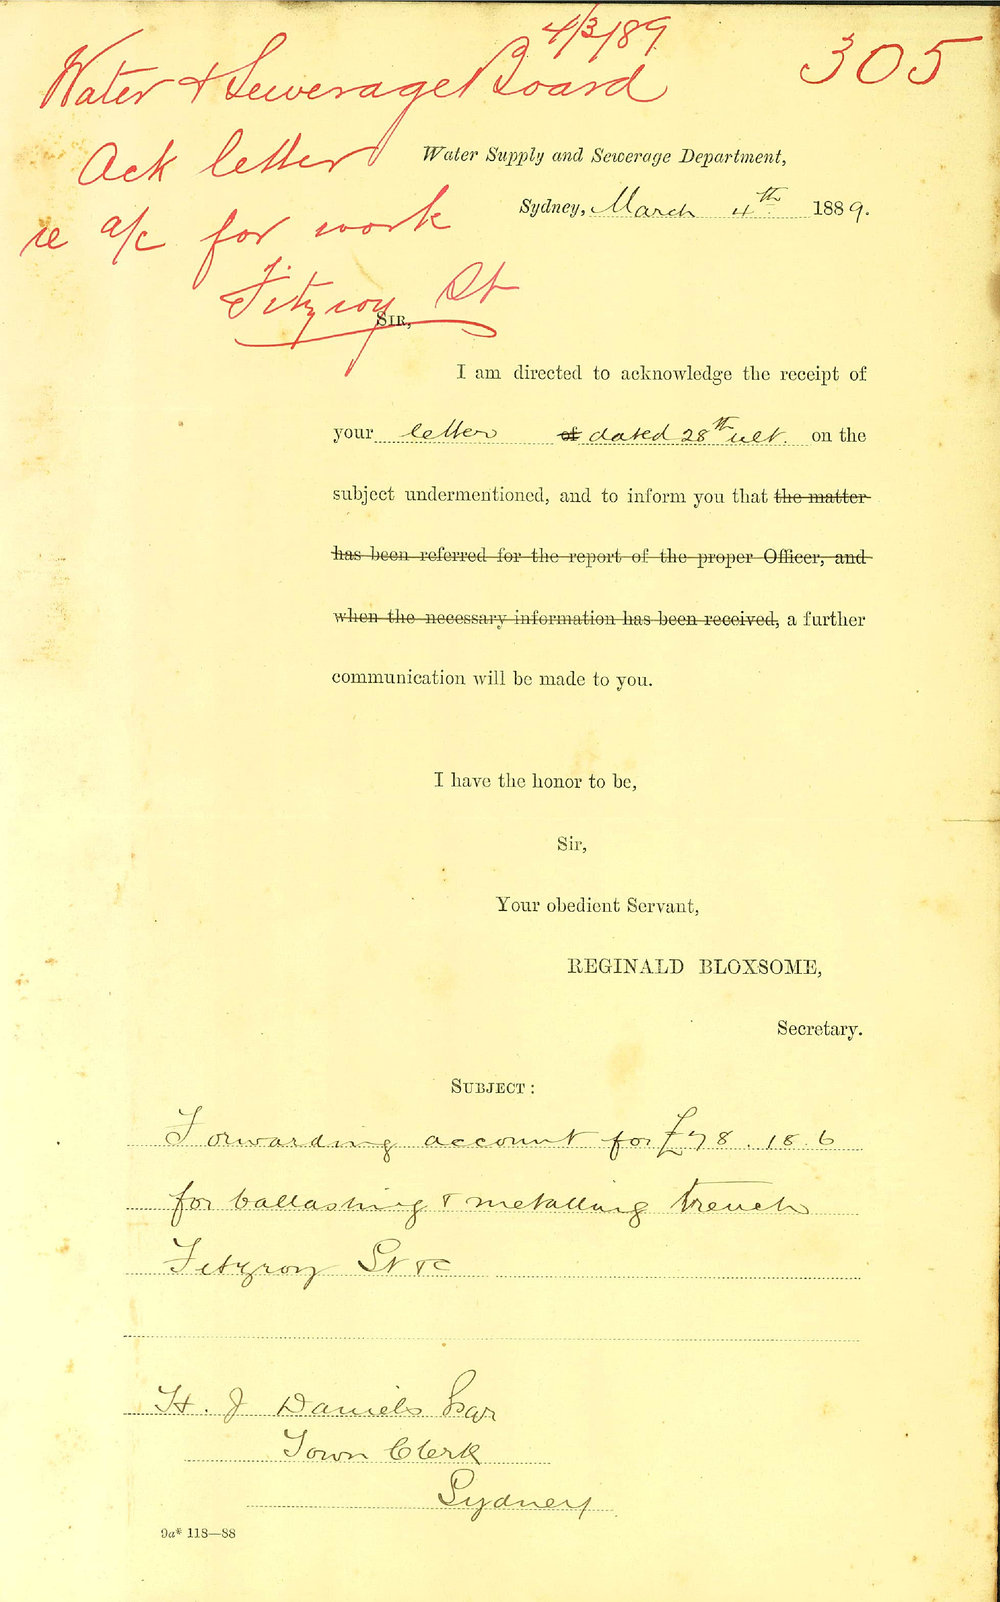 4/3/89
305
Water & Sewerage Board
Ack letter
re a/c for work
Fitzroy St
Water Supply and Sewerage Department,
Sydney, March 4th 1889.
SIR,
I am directed to acknowledge the receipt of
your letter of dated 28th ult. on the
subject undermentioned, and to inform you that the matter
has been referred for the report of the proper Officer, and
when the necessary information has been received, a further
communication will be made to you.
I have the honor to be,
Sir,
Your obedient Servant,
REGINALD BLOXSOME,
Secretary.
SUBJECT:
Forwarding account for £78.18.6
for ballasting & metalling trench
Fitzroy St &c
H. J Daniels Esqr
Town Clerk
Sydney
9a* 118—88